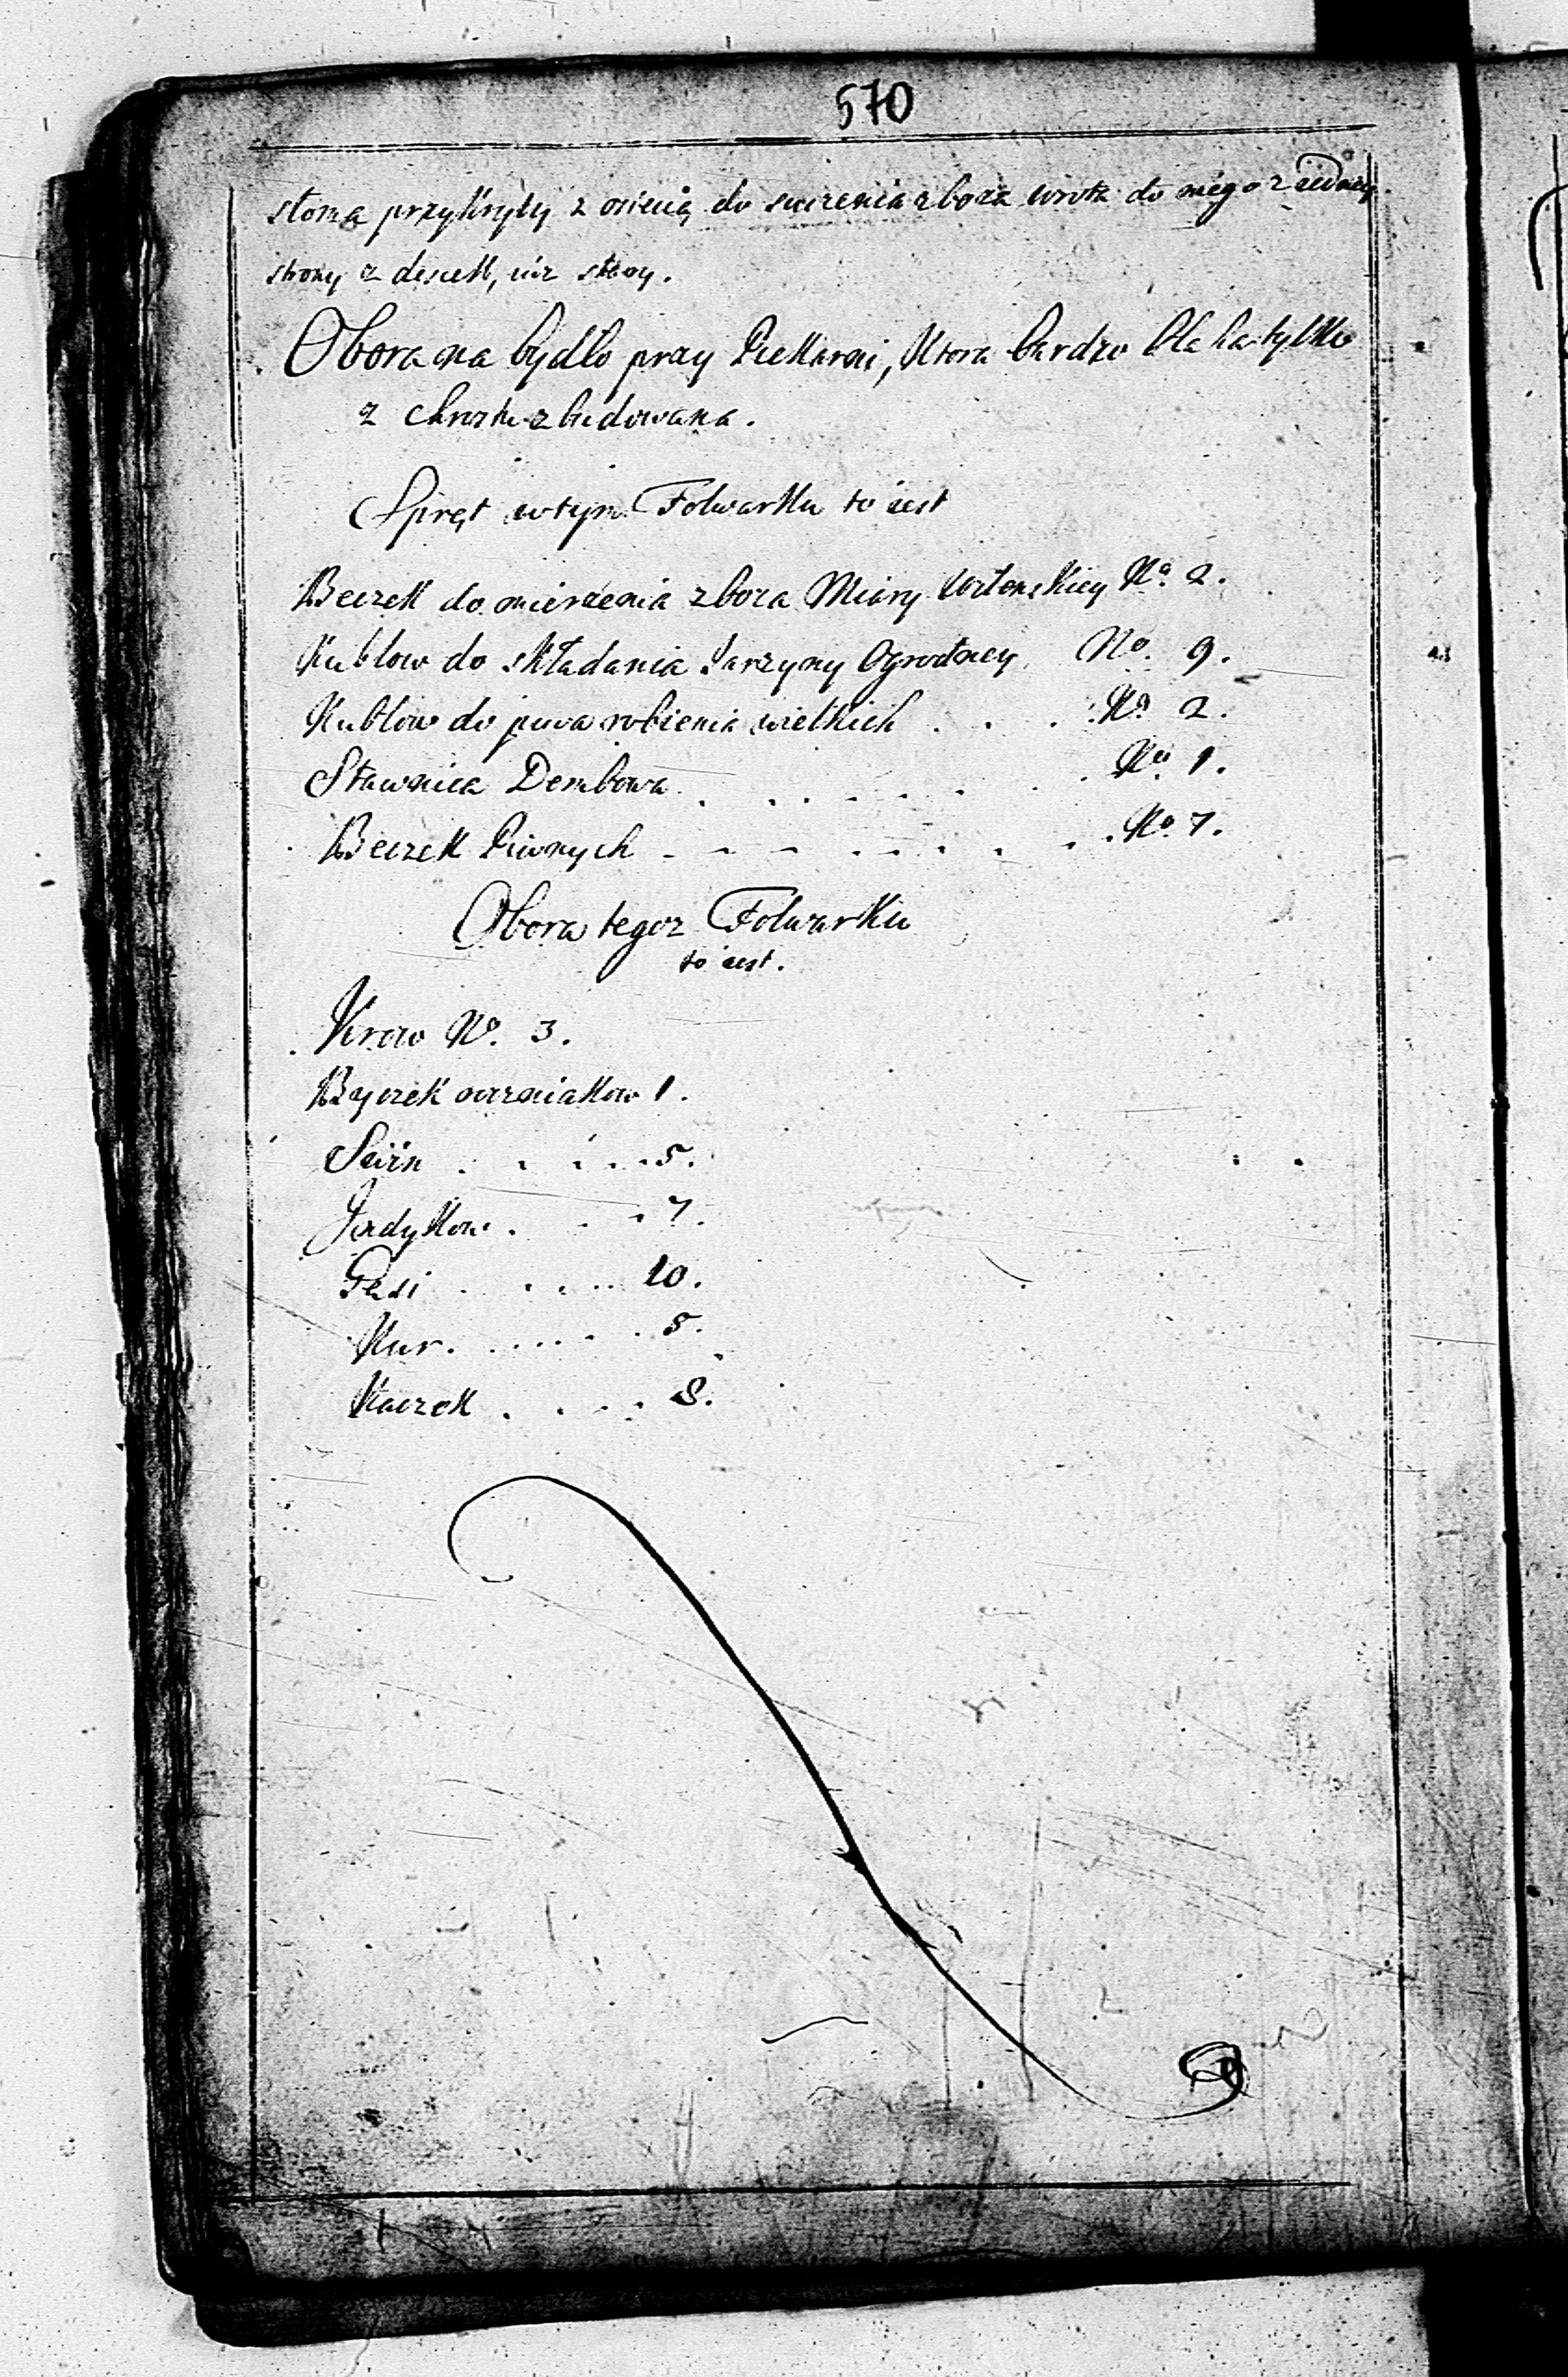 570
słomą przykryty z osiecią do suszenia zboża wrota do niego z iedney
strony z desek, iuż stary.
Obora na bydło przy Piekarni, Ktora bardzo błaha tylko
z chrustu zbudowana.
Spręt w tym Folwarku to iest
Beczek do mierzenia zboza Miary Wilenskiey No. 2.
Kubłow do składania Jarzyny Ogrodney No. 9.
Kubłow do piwa robienia wielkich . . . No 2.
Stawnica Dembowa . . . . . . . No. 1.
Beczek Piwnych - - - . . . . . . No. 7.
Obora tegoz Folwarku
to iest.
Krow No. 3.
Byczek roczniakow 1.
Swin . . . . . 5.
Jndykow . . . 7.
Gęsi . . . . . 10.
Kur. . . . . . 5.
Kaczek . . . . 8.